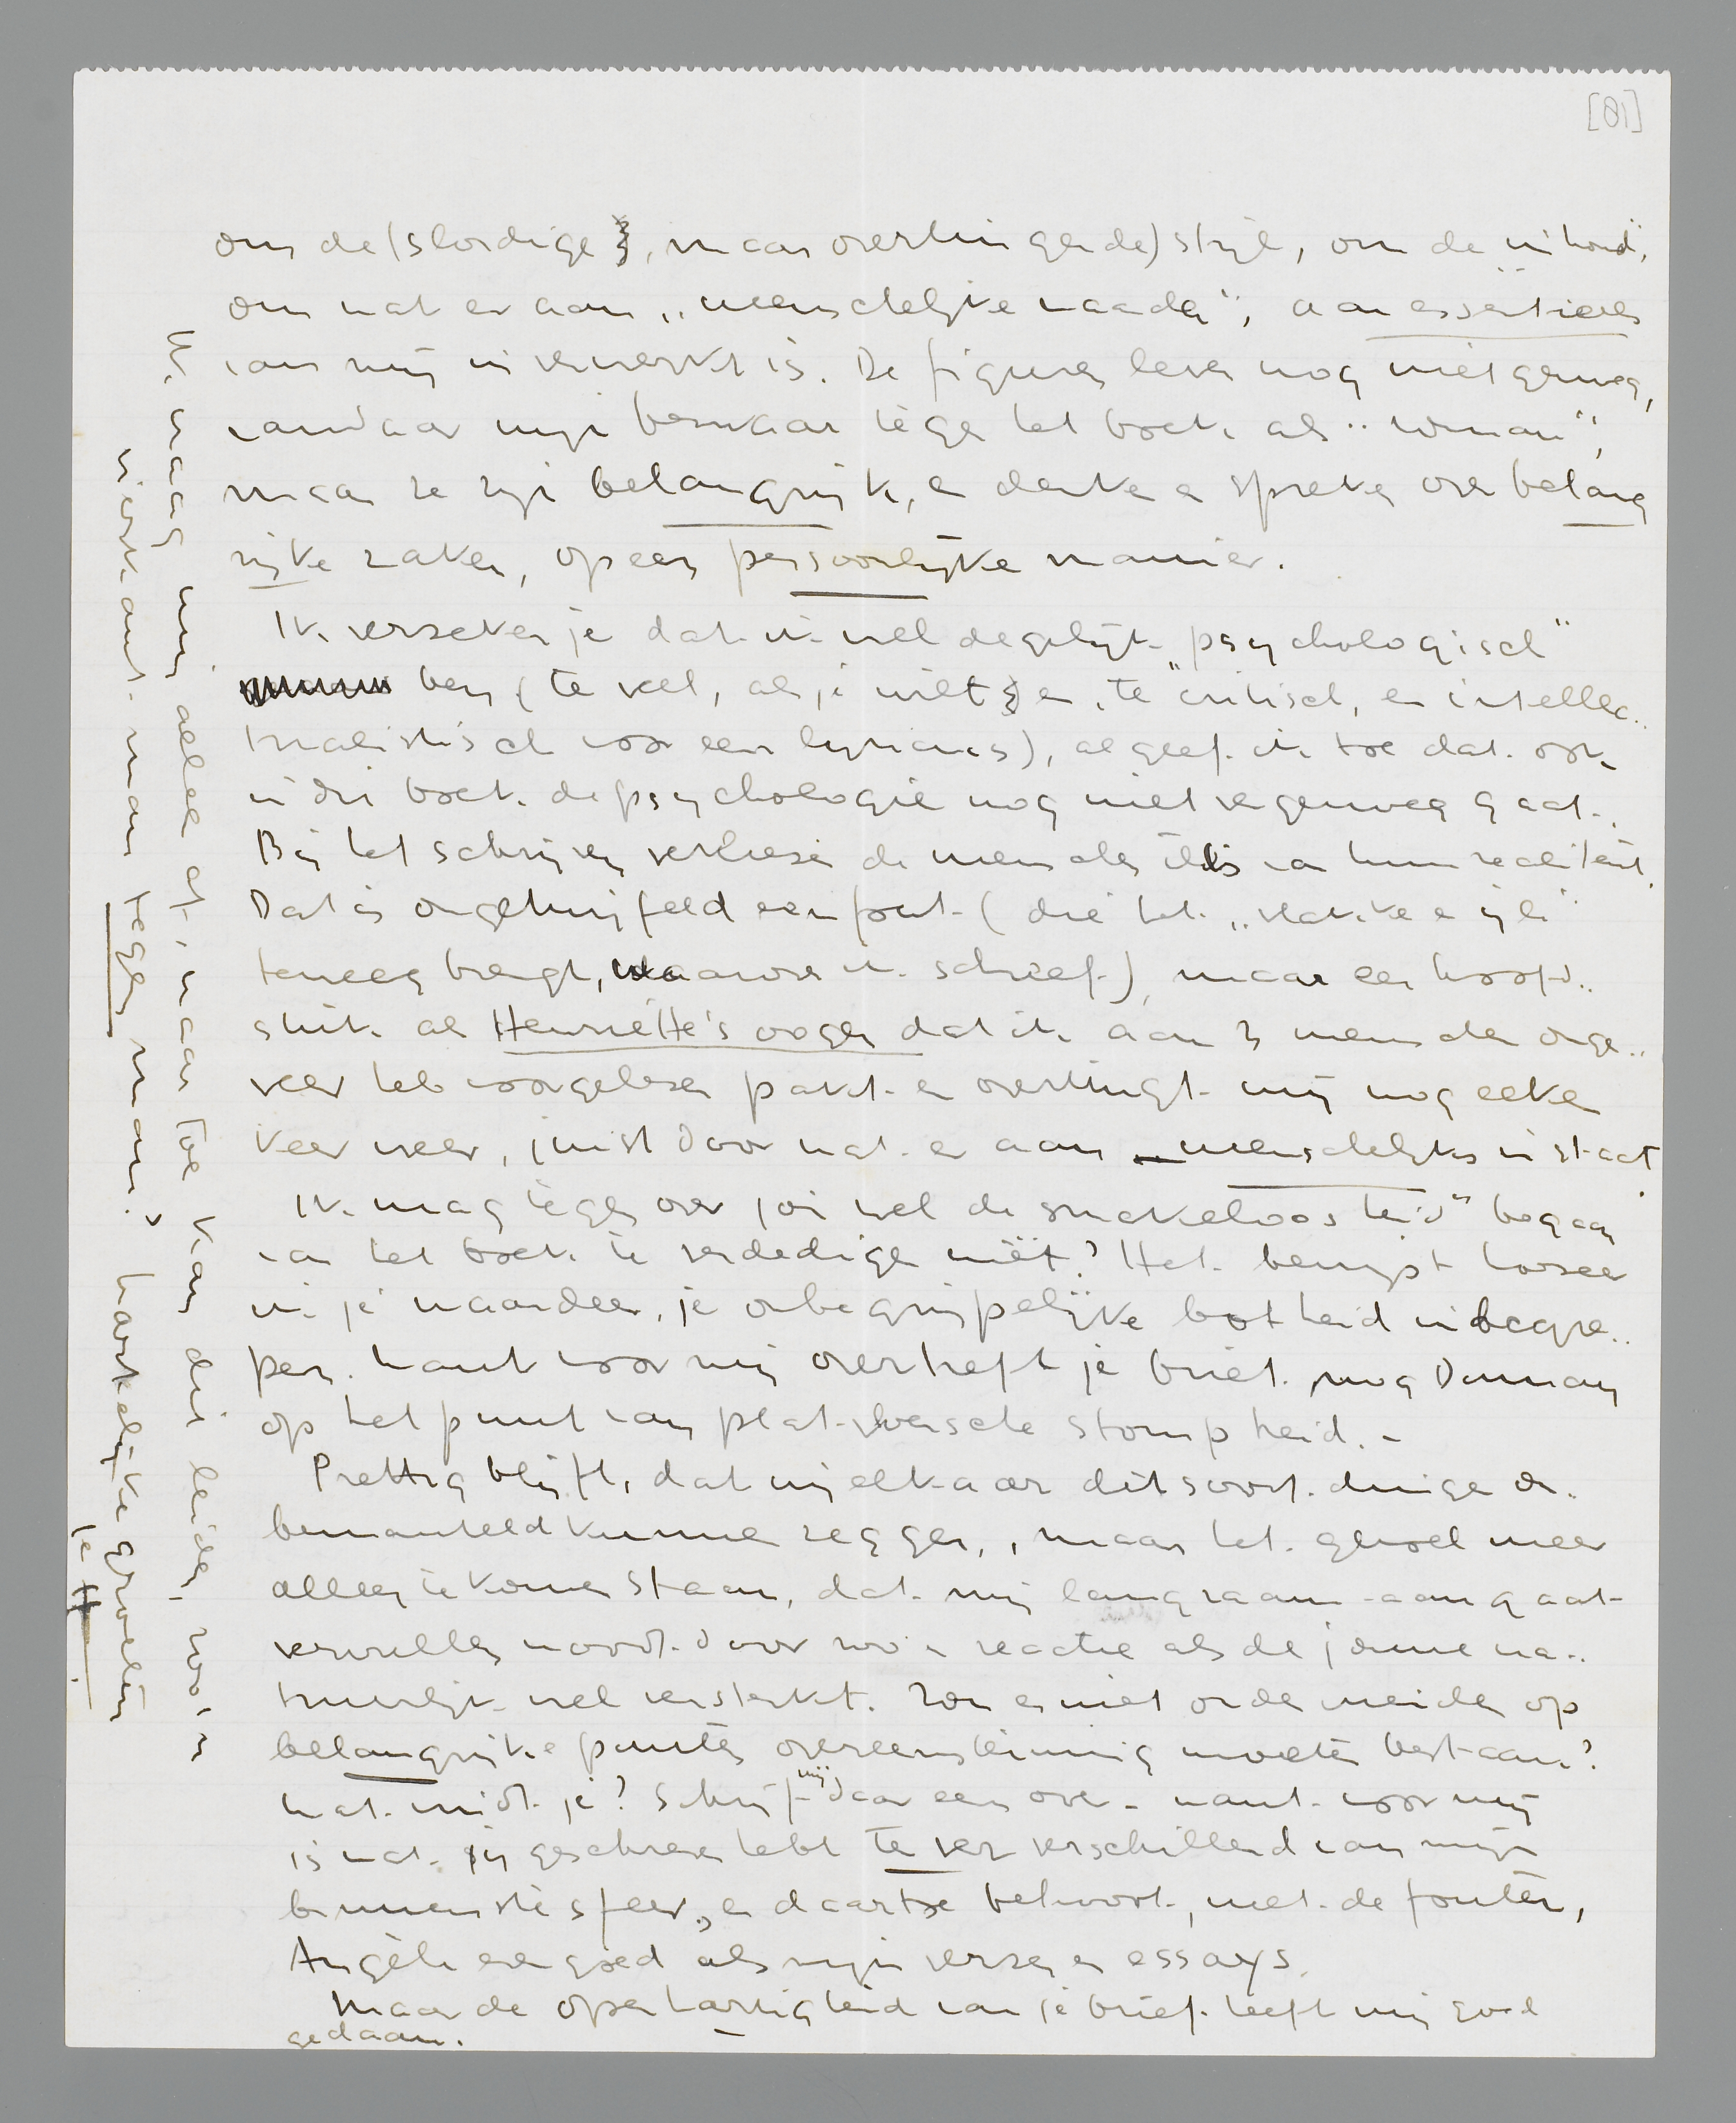 [81]
om de (slordige, maar overtuigende) stijl, om de inhoud,
om wat er aan „menschelijke waarde", aan essentieels
van mij in verwerkt is. De figuren leven nog niet genoeg,
vandaar mijn bezwaar tegen het boek als „roman",
maar ze zijn belangrijk, en denken en spreken over belang
rijke zaken, op een persoonlijke manier.
Ik verzeker je dat ik wel degelijk „psychologisch"
ben (te veel, als je wilt, en te critisch, en intellec..
tualistisch voor een lyricus), al geef ik toe dat ook
in dit boek de psychologie nog niet ver genoeg gaat.
Bij het schrijven verliezen de menschen iets van hun realiteit.
Dat is ongetwijfeld een fout (die het „vlakke en ijle"
teweeg brengt, waarover ik schreef), maar een hoofd..
stuk als Henriëtte's oogen dat ik aan 3 menschen onge..
veer heb voorgelezen pakt en overtuigt mij nog elken
keer weer, juist door wat er aan menschelijks in staat.
Ik mag tegenover jou wel de smakeloosheid" begaan
van het boek te verdedigen niet? Het bewijst hoezeer
ik je waardeer, je onbegrijpelijke botheid inbegre..
pen. Want voor mij overtreft je brief nog Douman
op het punt van plat-vloersche stompheid. -
Prettig blijft, dat wij elkaar dit soort dingen on..
bemanteld kunnen zeggen, maar het gevoel meer
alleen te komen staan, dat mij langzaam-aan gaat
vervullen wordt door zoo'n reactie als de jouwe na..
tuurlijk wel versterkt. Zou er niet onder vrienden op
belangrijke punten overeenstemming moeten bestaan?
Wat vindt je? Schrijf mij daar eens over - want voor mij
is wat jij geschreven hebt te ver verschillend van mijn
binnenste sfeer, en daartoe behoort, met de fouten,
Angèle evengoed als mijn verzen en essays.
Maar de openhartigheid van je brief heeft mij goed
gedaan.
Ik vraag mij alleen af, waar toe kan dit leiden, zoo'n
vierkant man tegen man? hartelijke groeten
je H.